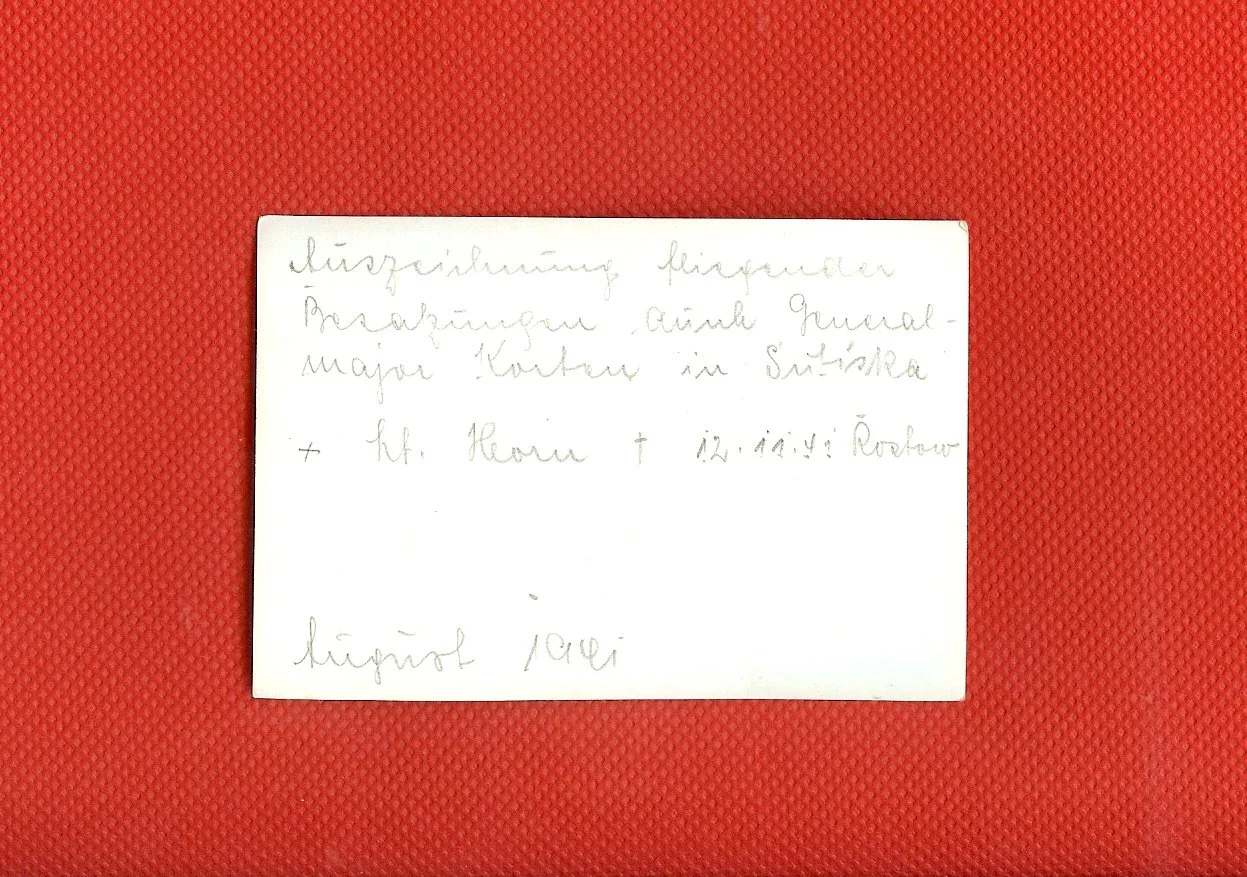 Auszeichnung fliegender
Besatzungen durch General-
major Korten in Sutiska
+ Lt. Horn † 12.11.41 Rostow
August 1941